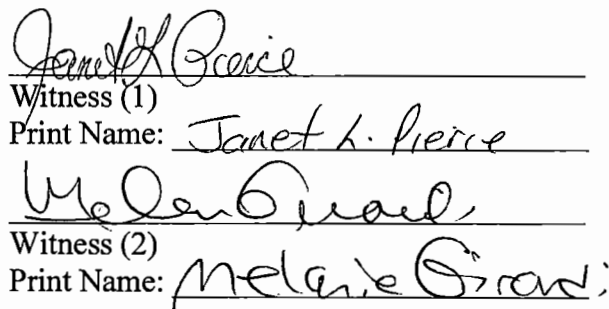 Janet L Pierce
Witness (1)
Print Name: Janet L. Pierce
Witness (2)
Print Name: Melanie Girard